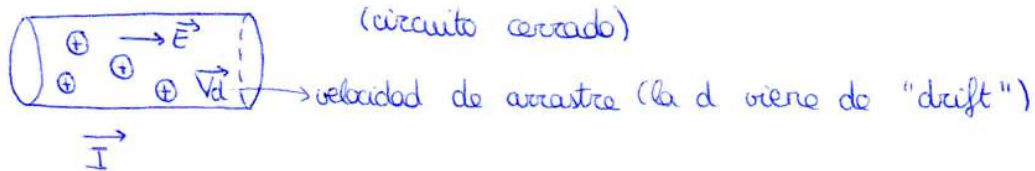 (circuito cerrado)
⊕ → E⃗
⊕ ⊕ ⊕ V⃗d → velocidad de arrastre (la d viene de "drift")
I⃗